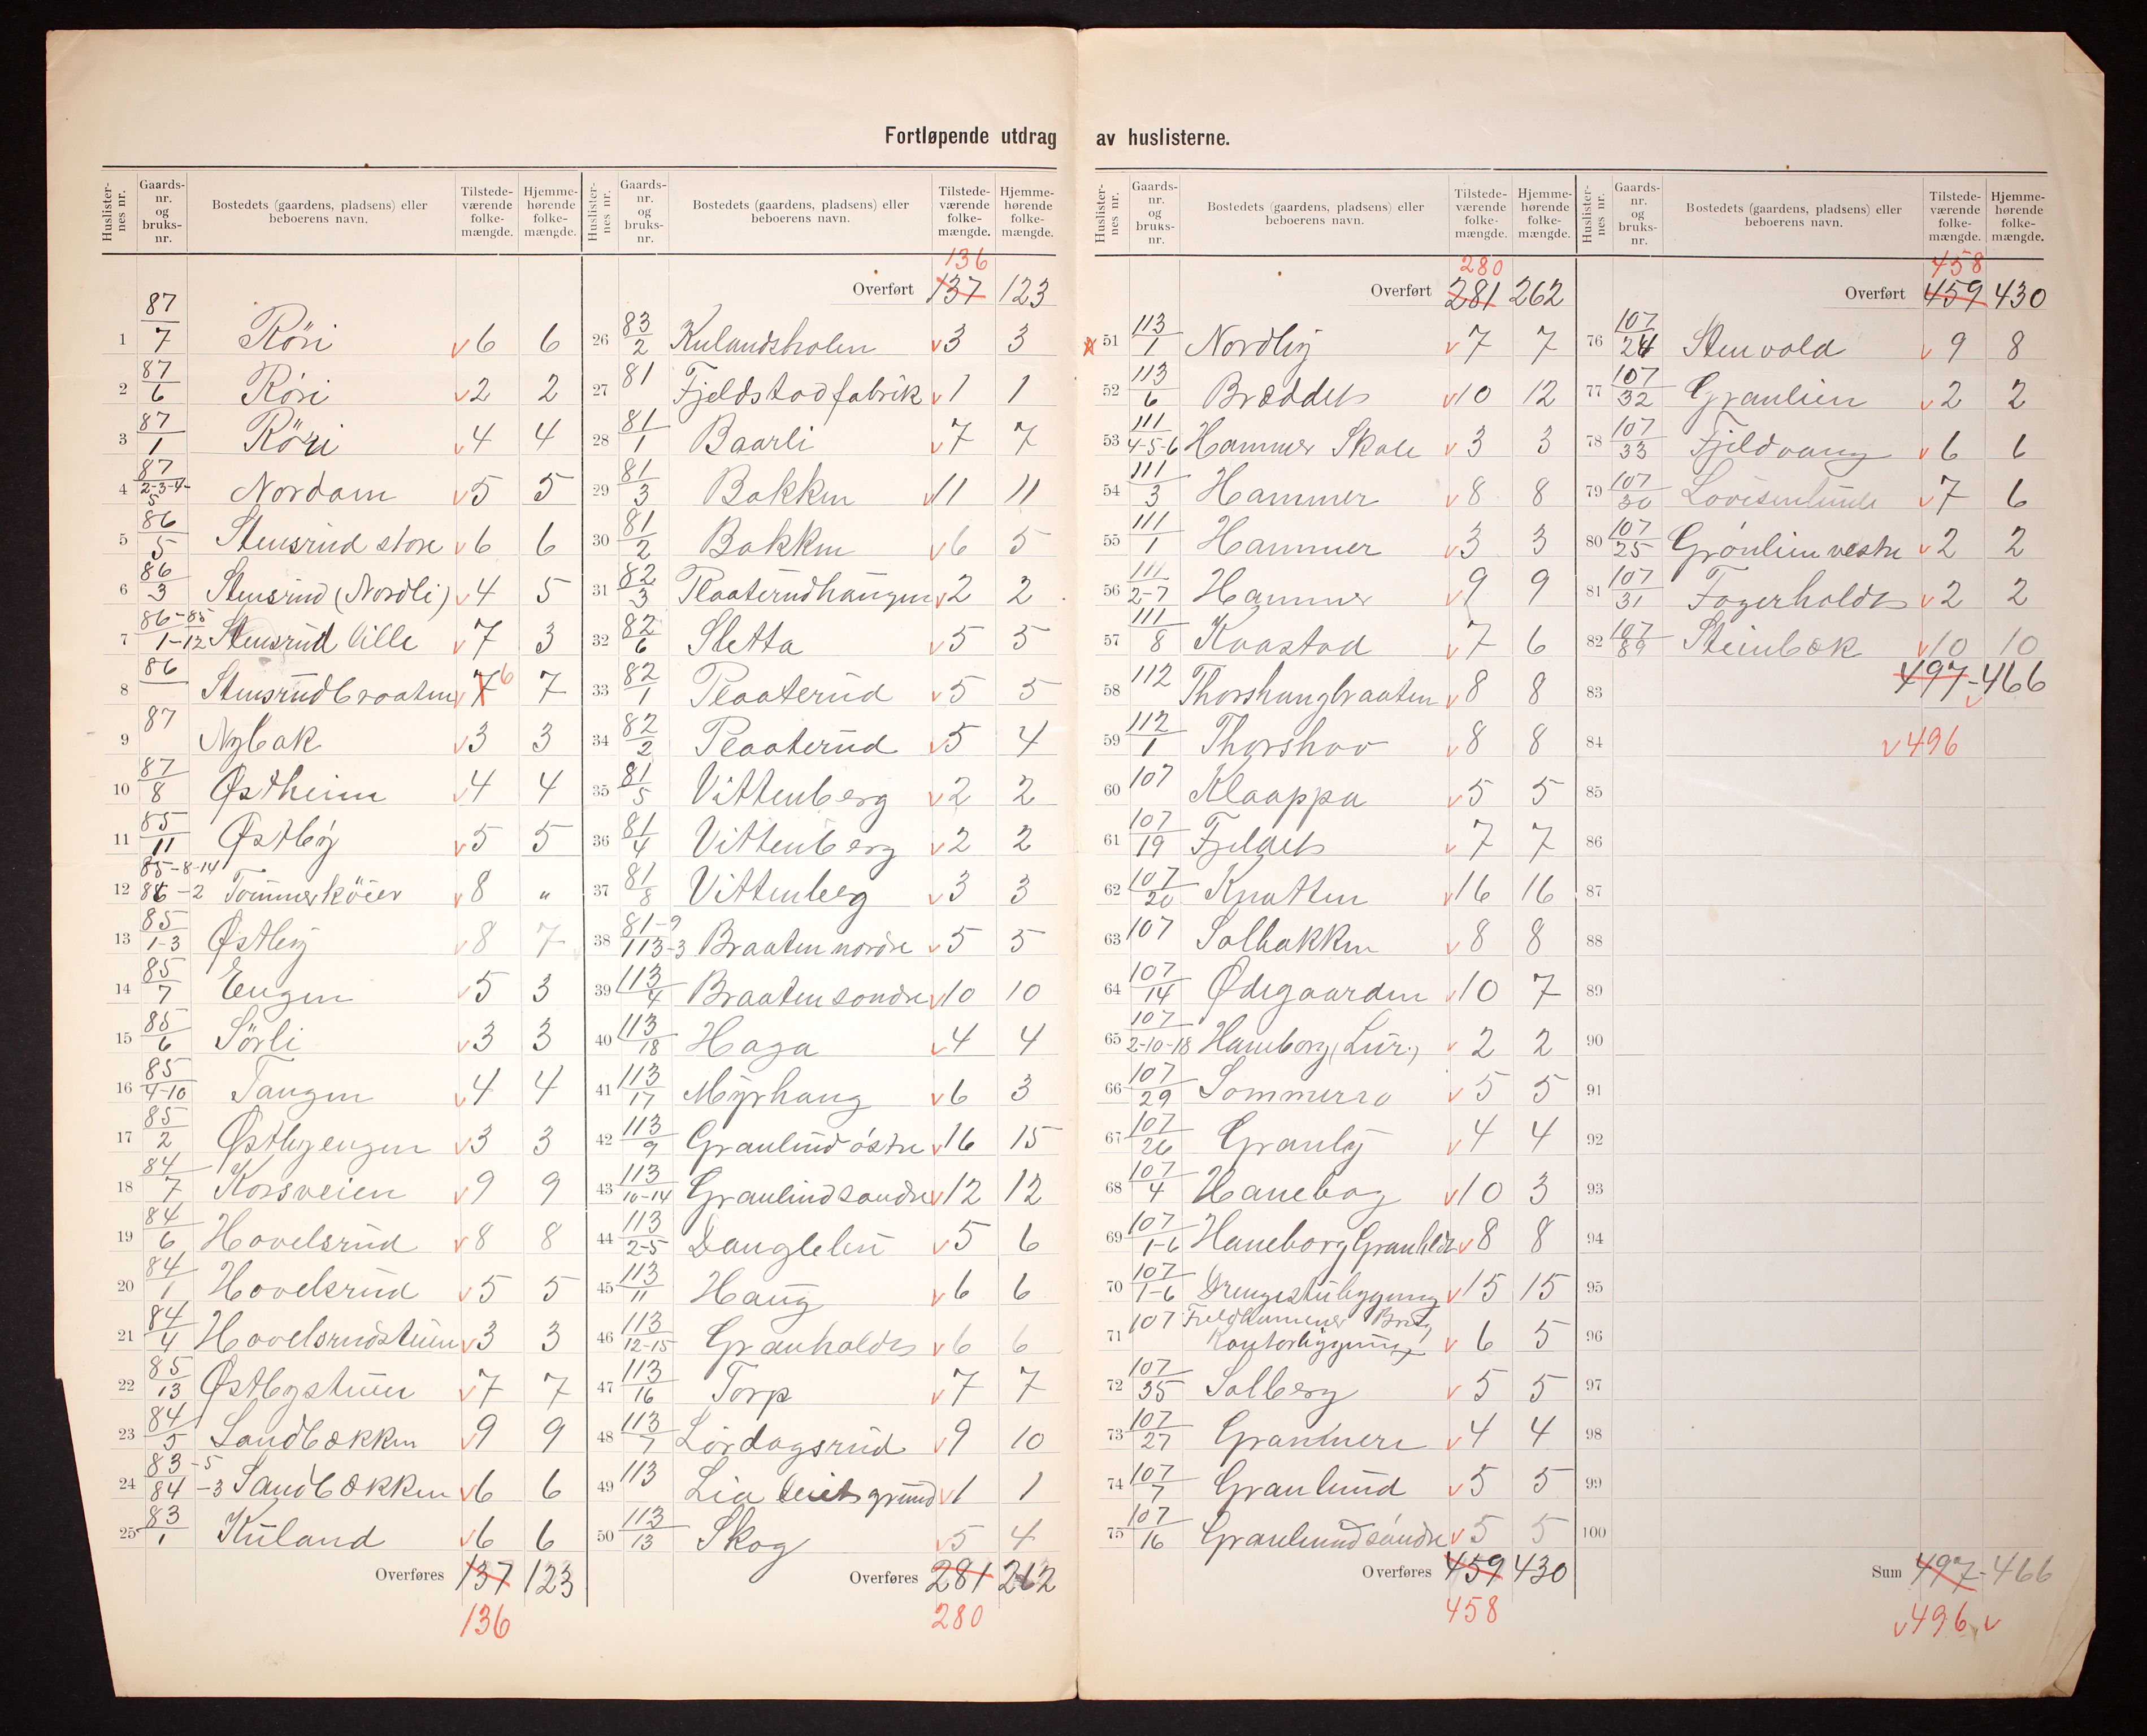 Fortløpende utdrag av huslisterne.
Huslister-nes nr. Gaards-nr. og bruks-nr. Bostedets (gaardens, pladsens) eller beboerens navn. Tilstede-værende folke-mængde. Hjemme-hørende folke-mængde.
1 87/7 Röri v 6 6
2 87/6 Röri v 2 2
3 87/1 Röri v 4 4
4 87/2-3-4-5 Nordam v 5 5
5 86/5 Stensrud store v 6 6
6 86/3 Stensrud (Nordli) v 4 5
7 86-85/1-12 Stensrud lille v 7 3
8 86 Stensrudbraaten v 7 6 7
9 87 Nybak v 3 3
10 87/8 Østheim v 4 4
11 85/11 Østby v 5 5
12 85-8-14 86-2 Tömmerköier v 8 "
13 85/1-3 Østby v 8 7
14 85/7 Engen v 5 3
15 85/6 Sörli v 3 3
16 85/4-10 Tangen v 4 4
17 85/2 Østbyengen v 3 3
18 84/7 Korsveien v 9 9
19 84/6 Hovelsrud v 8 8
20 84/1 Hovelsrud v 5 5
21 84/4 Hovelsrudstuen v 3 3
22 85/13 Østbystuen v 7 7
23 84/5 Sandbækken v 9 9
24 83-5 84-3 Sandbækken v 6 6
25 83/1 Kuland v 6 6
Overføres 137 123
136
Huslister-nes nr. Gaards-nr. og bruks-nr. Bostedets (gaardens, pladsens) eller beboerens navn. Tilstede-værende folke-mængde. Hjemme-hørende folke-mængde.
136
Overført 137 123
26 83/2 Kulandsholen v 3 3
27 81 Fjeldstadfabrik v 1 1
28 81/1 Baarli v 7 7
29 81/3 Bakken v 11 11
30 81/2 Bakken v 6 5
31 82/3 Plaaterudhaugen v 2 2
32 82/6 Sletta v 5 5
33 82/1 Plaaterud v 5 5
34 82/2 Plaaterud v 5 4
35 81/5 Vittenberg v 2 2
36 81/4 Vittenberg v 2 2
37 81/8 Vittenberg v 3 3
38 81-9 113-3 Braaten nordre v 5 5
39 113/4 Braaten sondre v 10 10
40 113/18 Haga v 4 4
41 113/17 Myrhaug v 6 3
42 113/9 Granlund östre v 16 15
43 113/10-14 Granlund søndre v 12 12
44 113/2-5 v 5 6
45 113/11 Haug v 6 6
46 113/12-15 Granholdt v 6 6
47 113/16 Torp v 7 7
48 113/7 Lördagsrud v 9 10
49 113 Lia grund v 1 1
50 113/13 Skog v 5 4
Overføres 281 262
280
Huslister-nes nr. Gaards-nr. og bruks-nr. Bostedets (gaardens, pladsens) eller beboerens navn. Tilstede-værende folke-mængde. Hjemme-hørende folke-mængde.
280
Overført 281 262
51 113/1 Nordby v 7 7
52 113/6 Bræddet v 10 12
53 111/4-5-6 Hammer Skole v 3 3
54 111/3 Hammer v 8 8
55 111/1 Hammer v 3 3
56 111/2-7 Hammer v 9 9
57 111/8 Kaastad v 7 6
58 112 Thorshaugbraaten v 8 8
59 112/1 Thorshov v 8 8
60 107 Klaappa v 5 5
61 107/19 Fjeldet v 7 7
62 107/20 Knatten v 16 16
63 107 Solbakken v 8 8
64 107/14 Ødegaarden v 10 7
65 107/2-10-18 Haneborg v 2 2
66 107/29 Sommerro v 5 5
67 107/26 Granby v 4 4
68 107/4 Hanebog v 10 3
69 107/1-6 Haneborg v 8 8
70 107/1-6 Drengestubygning v 15 15
71 107 Kontorbygning v 6 5
72 107/35 Solberg v 5 5
73 107/27 v 4 4
74 107/7 Granlund v 5 5
75 107/16 Granlund söndre v 5 5
Overføres 459 430
458
Huslister-nes nr. Gaards-nr. og bruks-nr. Bostedets (gaardens, pladsens) eller beboerens navn. Tilstede-værende folke-mængde. Hjemme-hørende folke-mængde.
458
Overført 459 430
76 107/24 Stenvold v 9 8
77 107/32 Granlien v 2 2
78 107/33 Fjeldvang v 6 6
79 107/30 Lovisenlund v 7 6
80 107/25 Grönlien vestre v 2 2
81 107/31 Fagerholdt v 2 2
82 107/89 Steinbæk v 10 10
83 497-466
84 v 496
85
86
87
88
89
90
91
92
93
94
95
96
97
98
99
100
Sum 497-466
v 496 v